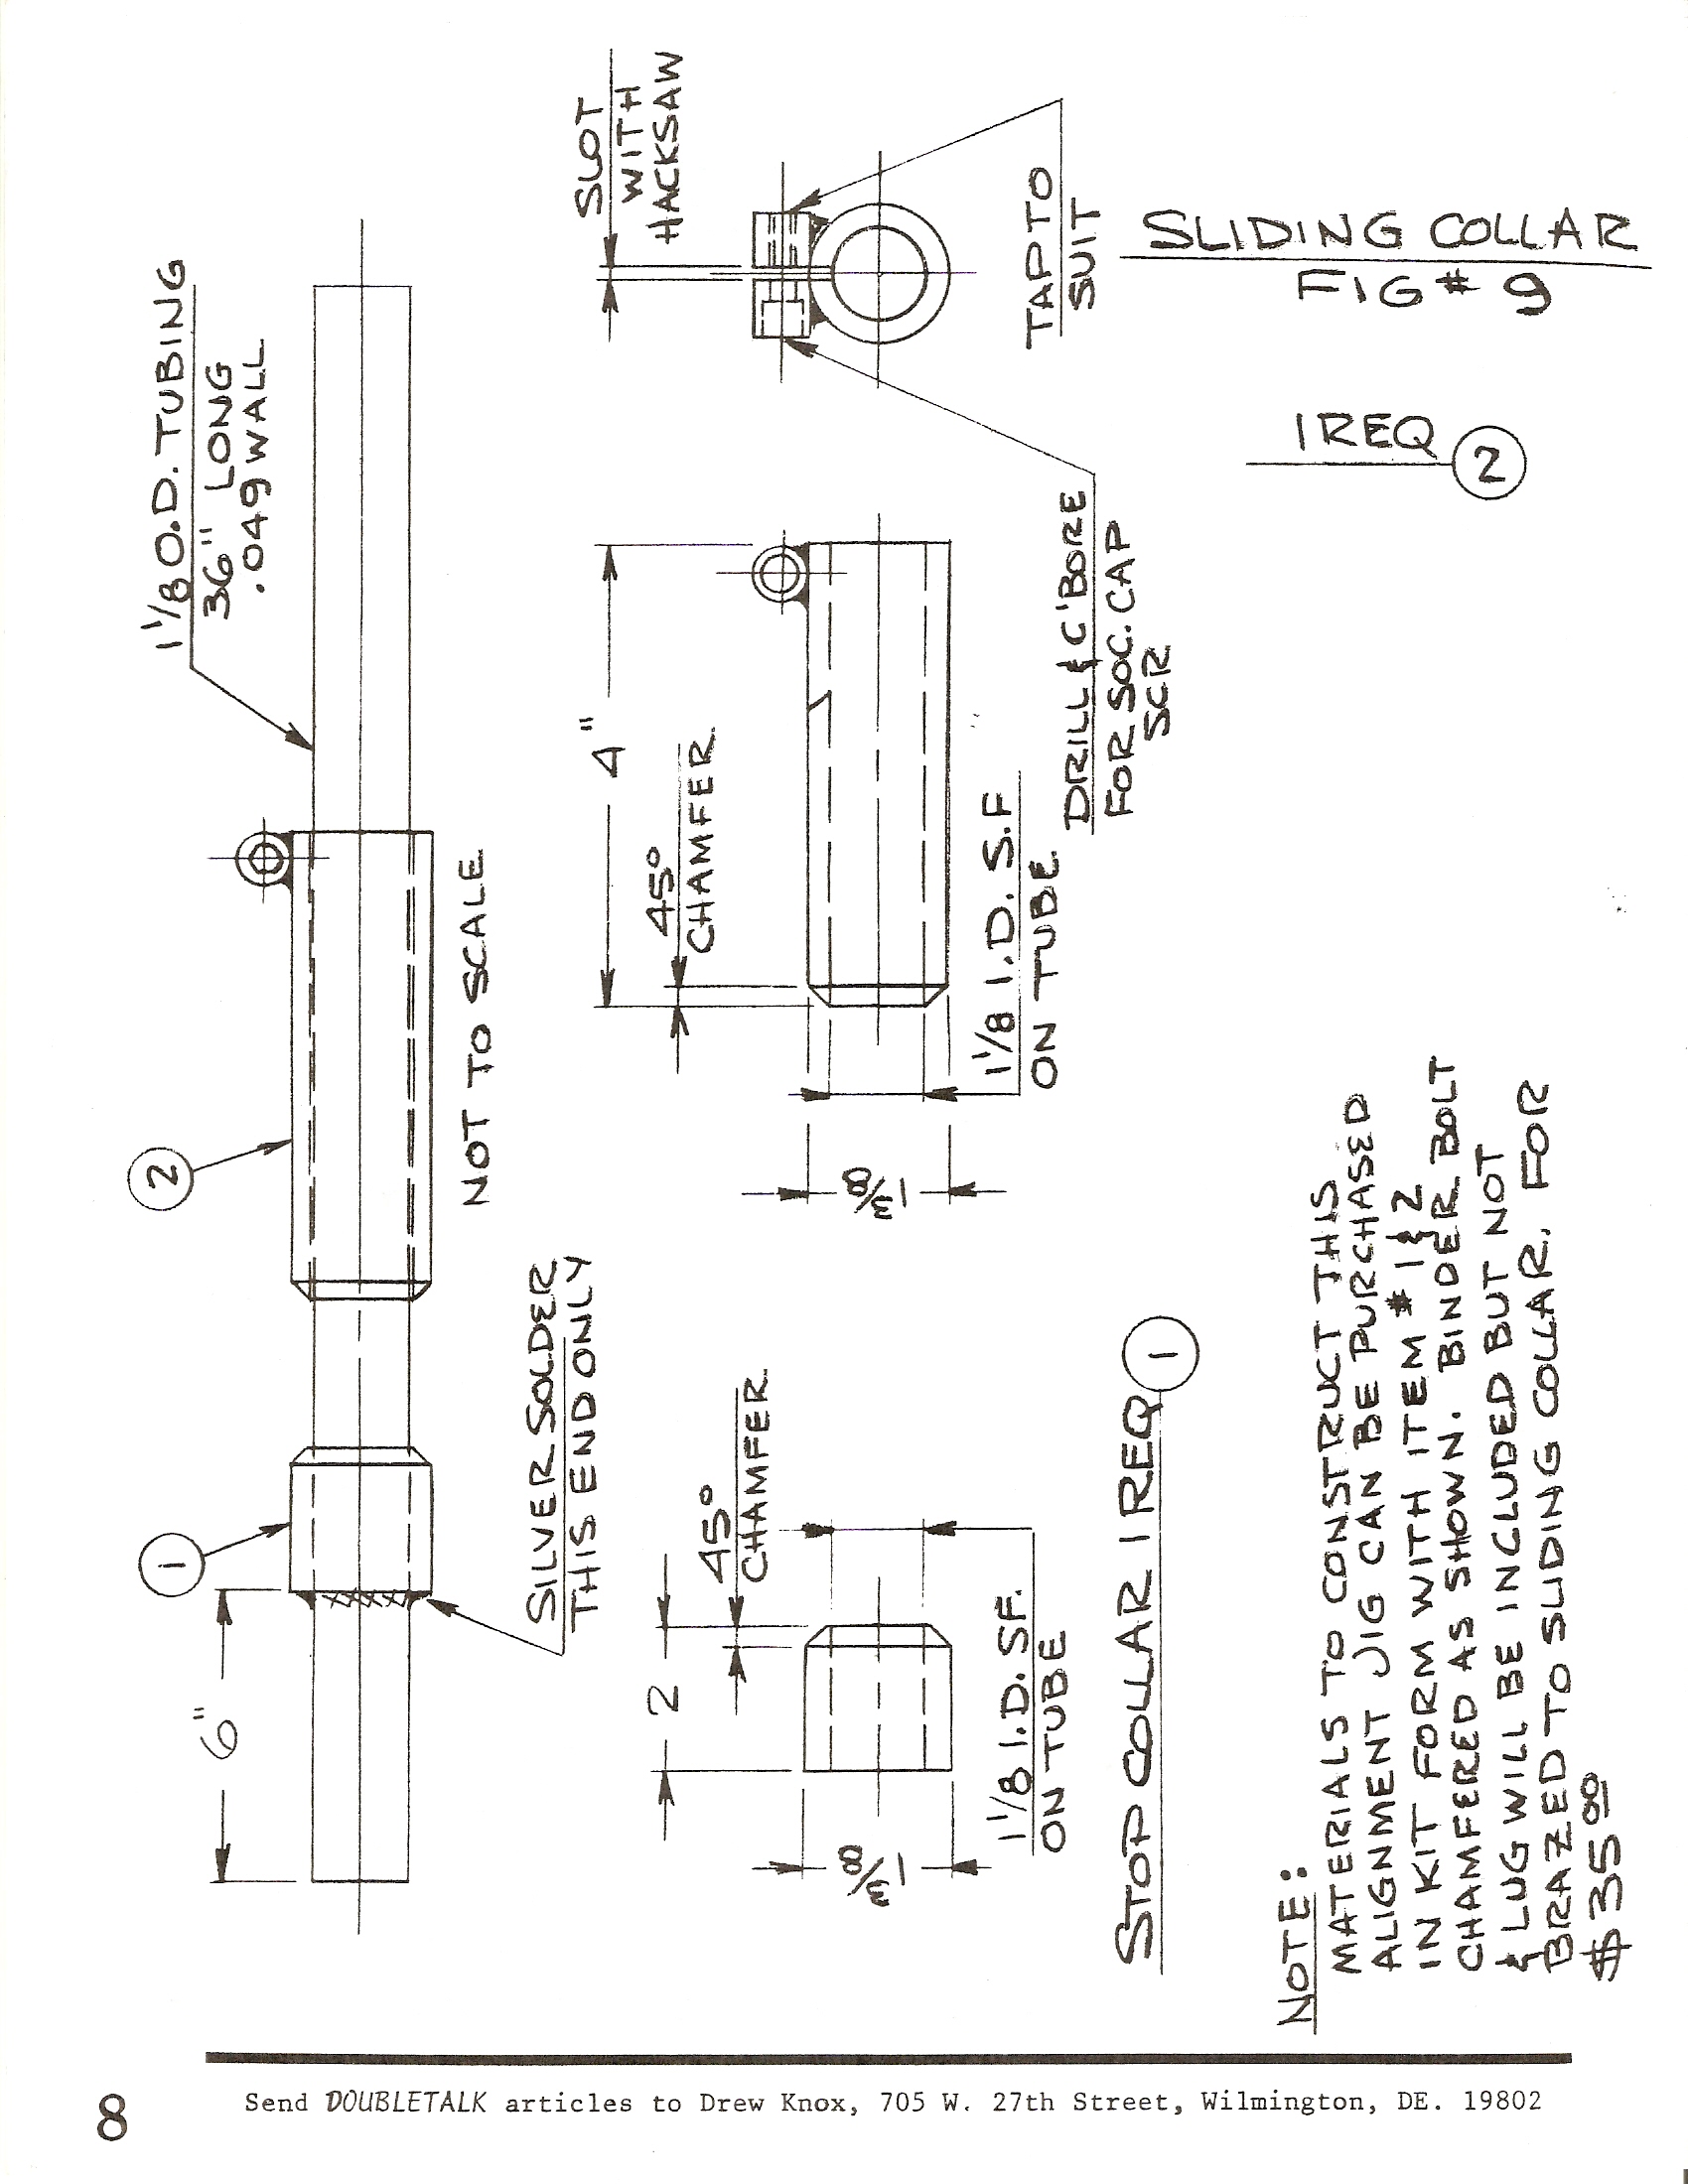 1 1/8 O.D. TUBING
36" LONG
.049 WALL
2
1
6"
NOT TO SCALE
SILVER SOLDER
THIS END ONLY
SLOT
WITH
HACKSAW
4"
45°
CHAMFER
1 3/8
1 1/8 I.D. S.F
ON TUBE
DRILL & C'BORE
FOR SOC. CAP
SCR
TAP TO
SUIT
SLIDING COLLAR
FIG # 9
1 REQ 2
2
45°
CHAMFER
1 3/8
1 1/8 I.D. SF.
ON TUBE
STOP COLLAR 1 REQ 1
NOTE:
MATERIALS TO CONSTRUCT THIS
ALIGNMENT JIG CAN BE PURCHASED
IN KIT FORM WITH ITEM # 1 & 2
CHAMFERED AS SHOWN. BINDER BOLT
& LUG WILL BE INCLUDED BUT NOT
BRAZED TO SLIDING COLLAR. FOR
$35 00
8
Send DOUBLETALK articles to Drew Knox, 705 W. 27th Street, Wilmington, DE. 19802